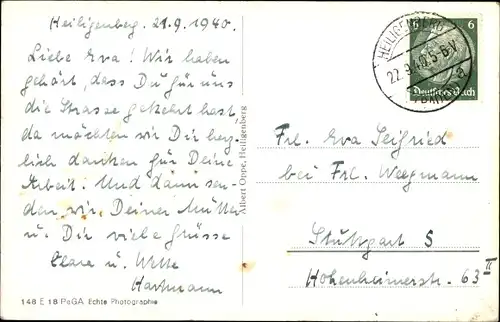 Heiligenberg. 21.9.1940.
Liebe Eva! Wir haben
gehört, dass Du für uns
die Strasse gekehrt hast,
da möchten wir Dir herz-
lich danken für Deine
Arbeit. Und dann sen-
den wir Deiner Mutter
u. Dir viele Grüsse
Clara u.
Hartmann
148 E 18 PeGA Echte Photographie
Albert Oppe, Heiligenberg
HEILIGENBERG
22.9.40.5-6V
6
Deutsches Reich
Frl. Eva Seifried
bei Frl. Weegmann
Stuttgart S
Hohenheimerstr. 63 II